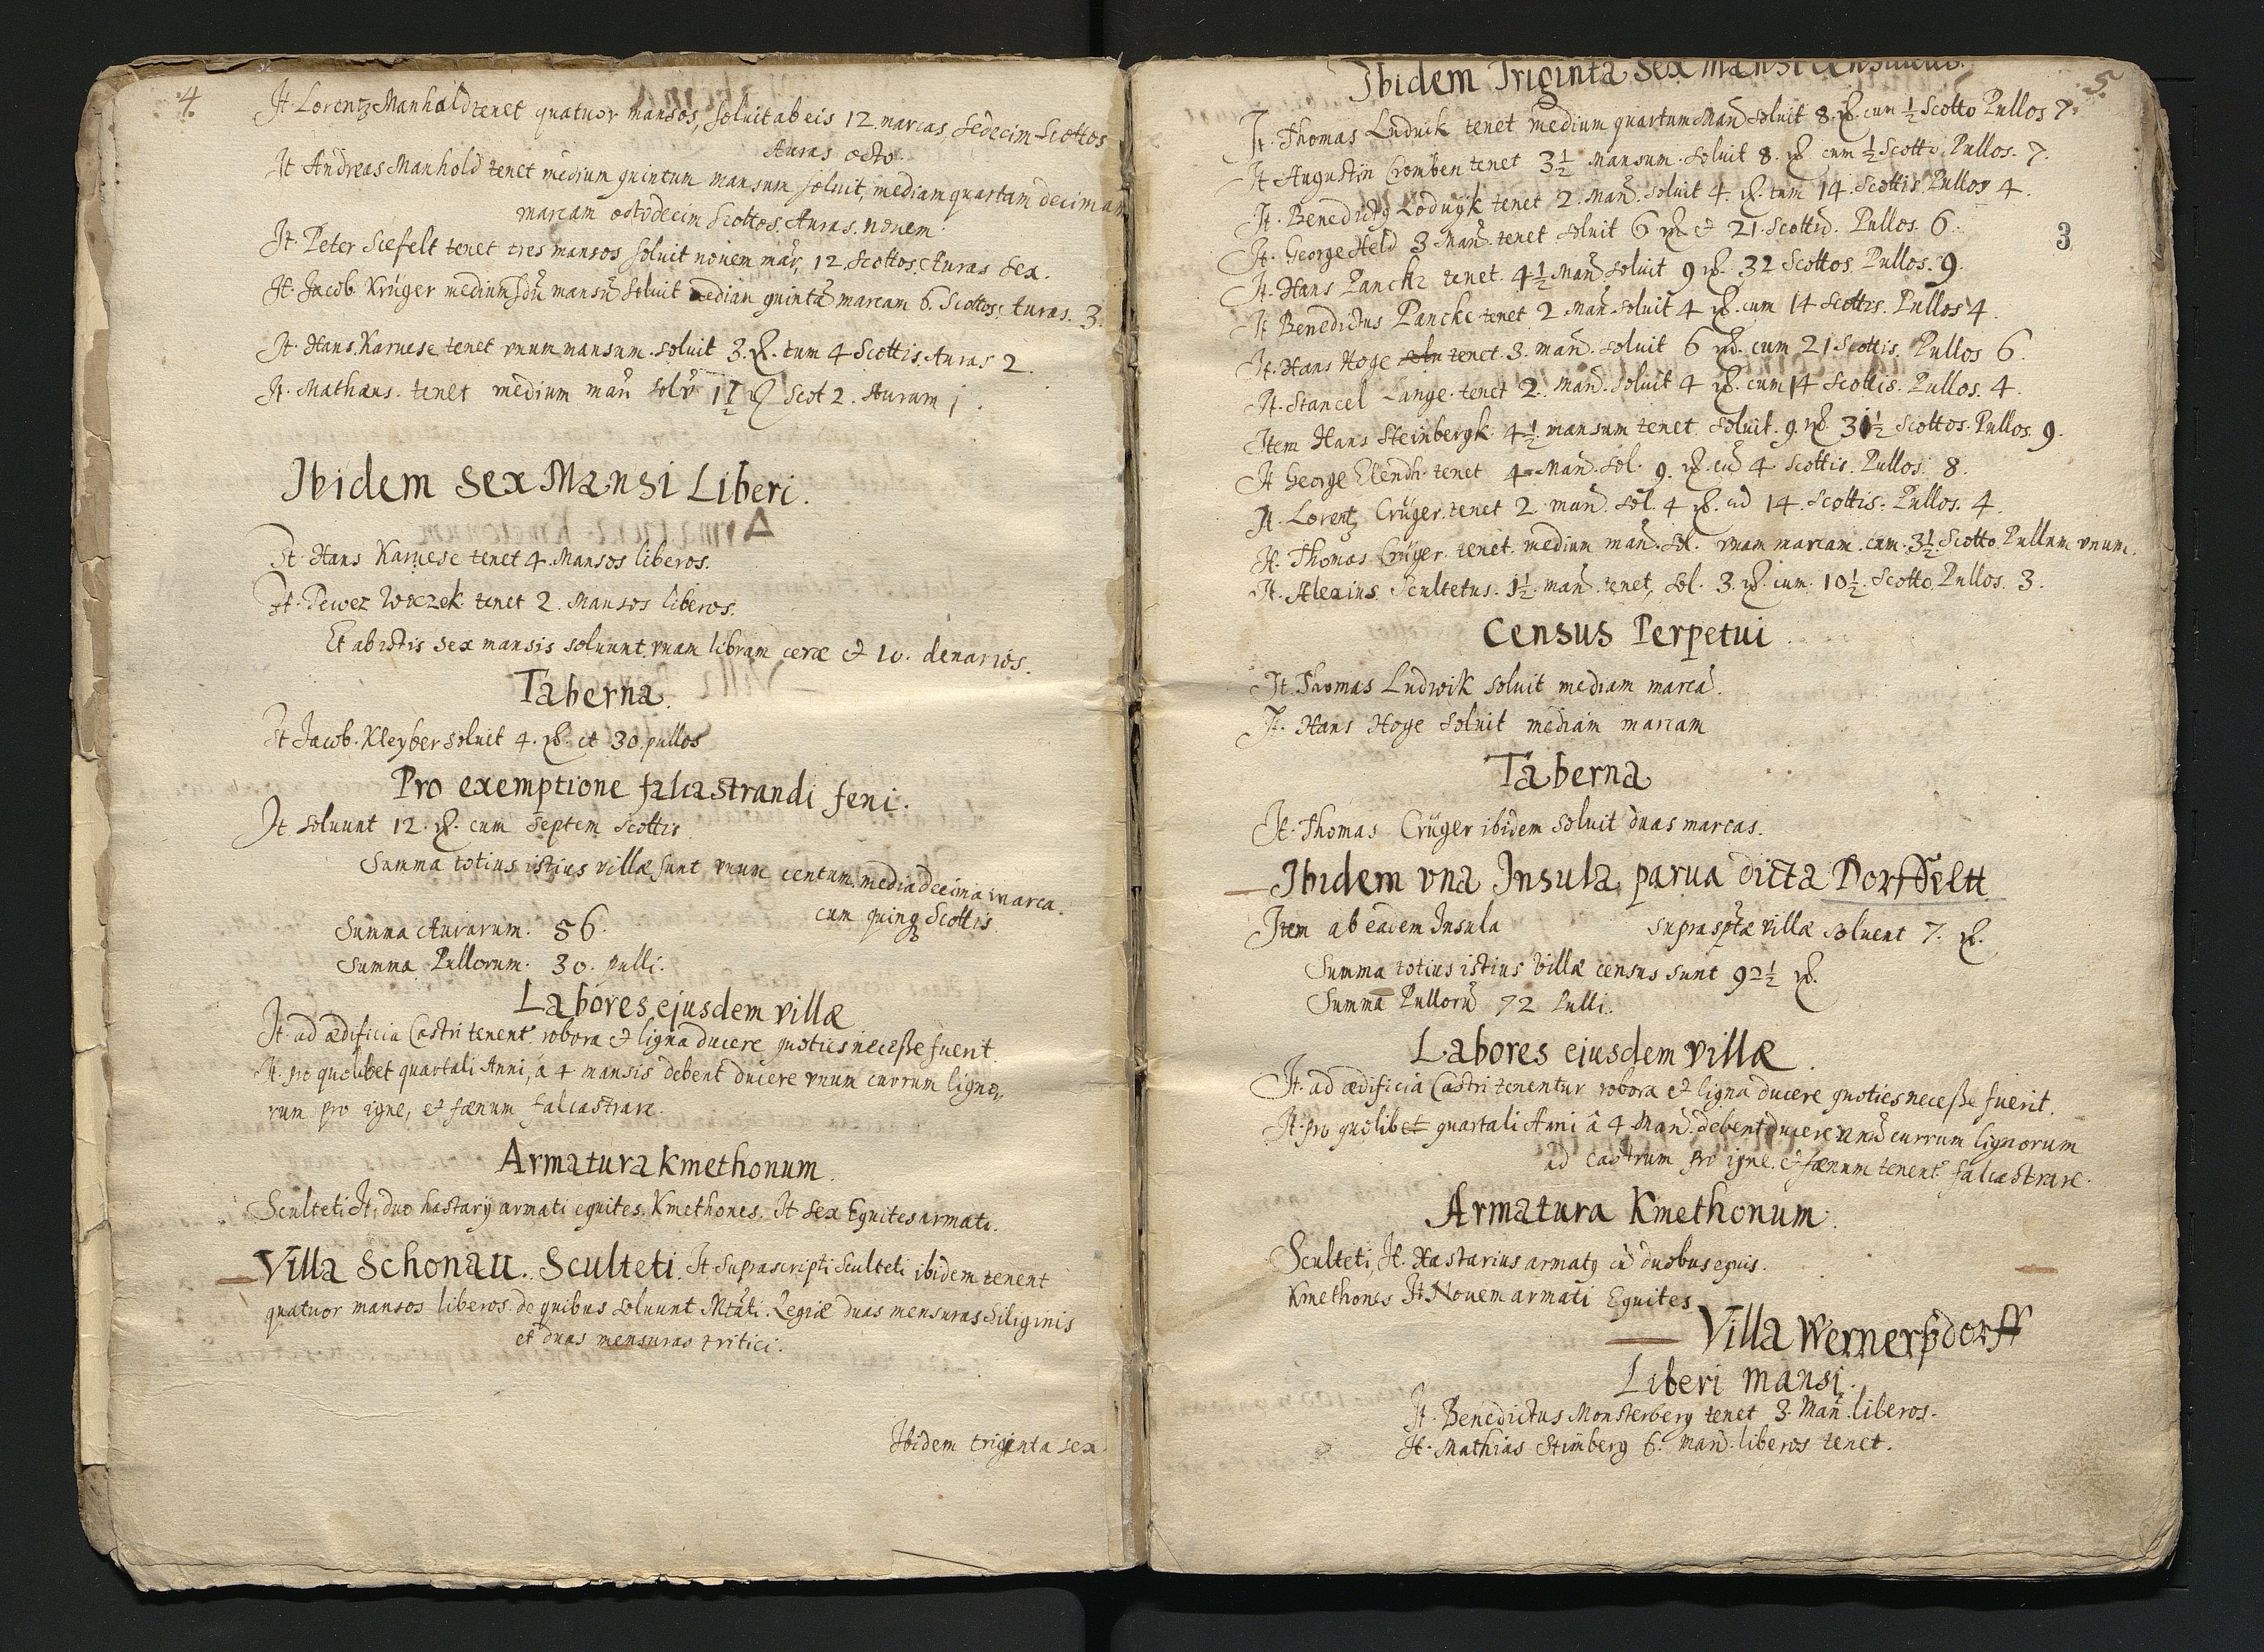 4.
It. Lorentz Manhald tenet quatuor mansos, soluit ab eis 12 marcas, sedecim Scottos
Auras octo.
It Andreas Manhold tenet medium quintum mansum soluit, mediam quartam decimam
marcam octodecim Scottos, Auras. nouem.
It. Peter Siefelt tenet tres mansos soluit nouem mar, 12. Scottos, Auras sex.
It. Jacob. Krüger medium mansũ soluit median quintã marcam 6. Scottos, Auras. 3.
It. Hans. Karuese tenet vnum mansum. soluit 3. cum 4 Scottis. Auras 2.
It. Mathæus. tenet medium mañ solỹ Scot 2. Auram j.
Ibidem sex Mansi Liberi.
It. Hans Karuese tenet 4. Mansos liberos.
It. Pewez Wiczek tenet 2. Mansos liberos.
Et ab istis sex mansis soluunt vnam libram ceræ et 10. denarios.
Taberna.
It Jacob. Kleyber soluit 4. et 30. pullos
Pro exemptione falcastrandi feni.
It soluunt 12. cum septem scottis
Summa totius istius villæ sunt vnum centum media decima marca.
cum quinq Scottis.
Summa Aurarum. 56.
Summa Pullorum. 30. pulli.
Labores ejusdem villæ
It. ad ædificia Castri tenent robora et ligna ducere quoties necesse fuerit.
It. pro quolibet quartali Anni, á 4 mansis debent ducere vnum currum ligno,
rum pro igne, et fænum falcastrare.
Armatura Kmethonum.
Sculteti It. duo hastarij armati equites. Kmethones. It sex Equites armati.
Villa Schonau. Sculteti. It suprascripti Sculteti ibidem tenent
quatuor mansos liberos. de quibus soluunt Mtãti. Regiæ duas mensuras siliginis
et duas mensuras tritici.
Ibidem triginta sex
5.
3
Ibidem Triginta sex mansi censuales.
It. Thomas Ludwik tenet medium quartum Mañ soluit 8. cum ½ Scotto Pullos 7.
It Augustin Cromben tenet 3½ Mansum. soluit 8. cum ½ Scotto. Pullos. 7.
It. Benedictq Lodwyk tenet 2. Mañ. soluit 4. cum 14. Scottis. Pullos 4.
It. George Held 3 Mañ. tenet soluit 6 et 21. Scottis. Pullos. 6.
It. Hans Pancke tenet. 4½ Mañ soluit 9. 32 Scottos. Pullos. 9.
It Benedictus Pancke tenet 2 Mañ. soluit 4. cum 14 Scottis. Pullos 4.
It. Hans Hoge tenet. 3. mañ. soluit 6. cum 21 Scottis. Pullos 6.
It. Stancel Lange. tenet 2. Mañ. soluit 4. cum 14 Scottis. Pullos. 4.
Item Hans Steinbergk. 4½. mansum tenet. soluit. 9. 31½ Scottos. Pullos. 9.
It George Elendt. tenet 4 Mañ. sol. 9. cũ 4 Scottis. Pullos. 8.
It. Lorentz Crüger. tenet 2. mañ. sol. 4. 14. Scottis. Pullos. 4.
It. Thomas Crüger. tenet. medium mañ. sol. vnam marcam. cum. 3½. Scotto. Pullum vnum.
It. Alexius Scultetus. 1½. mañ. tenet, sol. 3. cum. 10½. Scotto. Pullos. 3.
Census Perpetui
It. Thomas Ludwik soluit mediam marcã.
It. Hans Hoge soluit mediam marcam
Taberna
It. Thomas Crüger ibidem soluit duas marcas.
Ibidem vna Insula, parua dicta Dorffeltt
Item ab eadem Insula suprasptæ villæ soluent 7.
Summa totius istius villæ census sunt 92½
Summa Pullorũ 72 Pulli.
Labores ejusdem villæ.
It. ad ædificia Castri tenentur robora et ligna ducere quoties necesse fuerit.
It. pro quolibet quartali Anni â 4 Mañ. debent ducere vnũ currum lignorum
ad castrum pro igne. et fænum tenent falcastrare.
Armatura Kmethonum.
Sculteti, It. Hastarius armatq cũ duobus equis.
Kmethones It. Nouem armati Equites
Villa Wernerßdorff
Liberi mansi.
It. Benedictus Monsterberg tenet 3. Mañ. liberos.
It. Mathias Stimberg 6. mañ. liberos tenet.